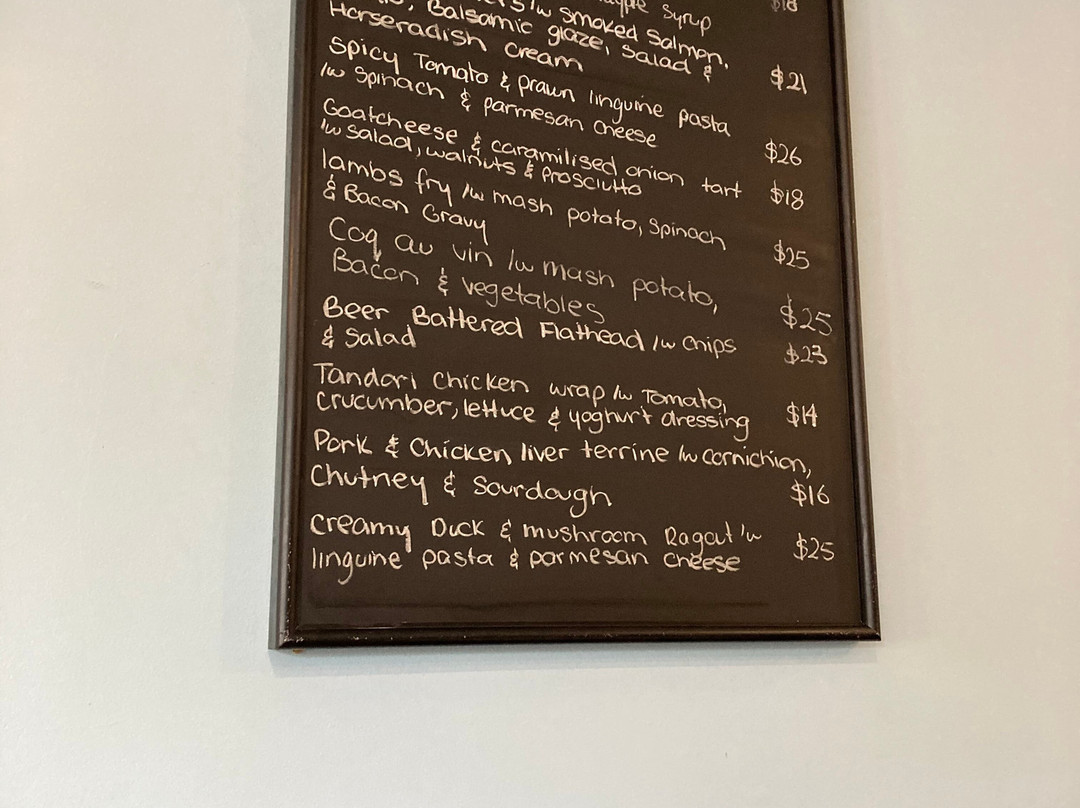 Syrup $18
/w Smoked Salmon,
Balsamic glaze, Salad &
Horseradish Cream $21
Spicy Tomato & prawn linguine pasta
/w Spinach & parmesan cheese $26
Goatcheese & caramilised onion tart
/w Salad, walnuts & Prosciutto $18
lambs fry /w mash potato, Spinach
& Bacon Gravy $25
Coq au vin /w mash potato,
Bacon & vegetables $25
Beer Battered Flathead /w Chips
& Salad $23
Tandori Chicken wrap /w Tomato,
Crucumber, lettuce & yoghurt dressing $14
Pork & Chicken liver terrine /w cornichion,
Chutney & Sourdough $16
Creamy Duck & mushroom Ragout /w
linguine pasta & parmesan cheese $25